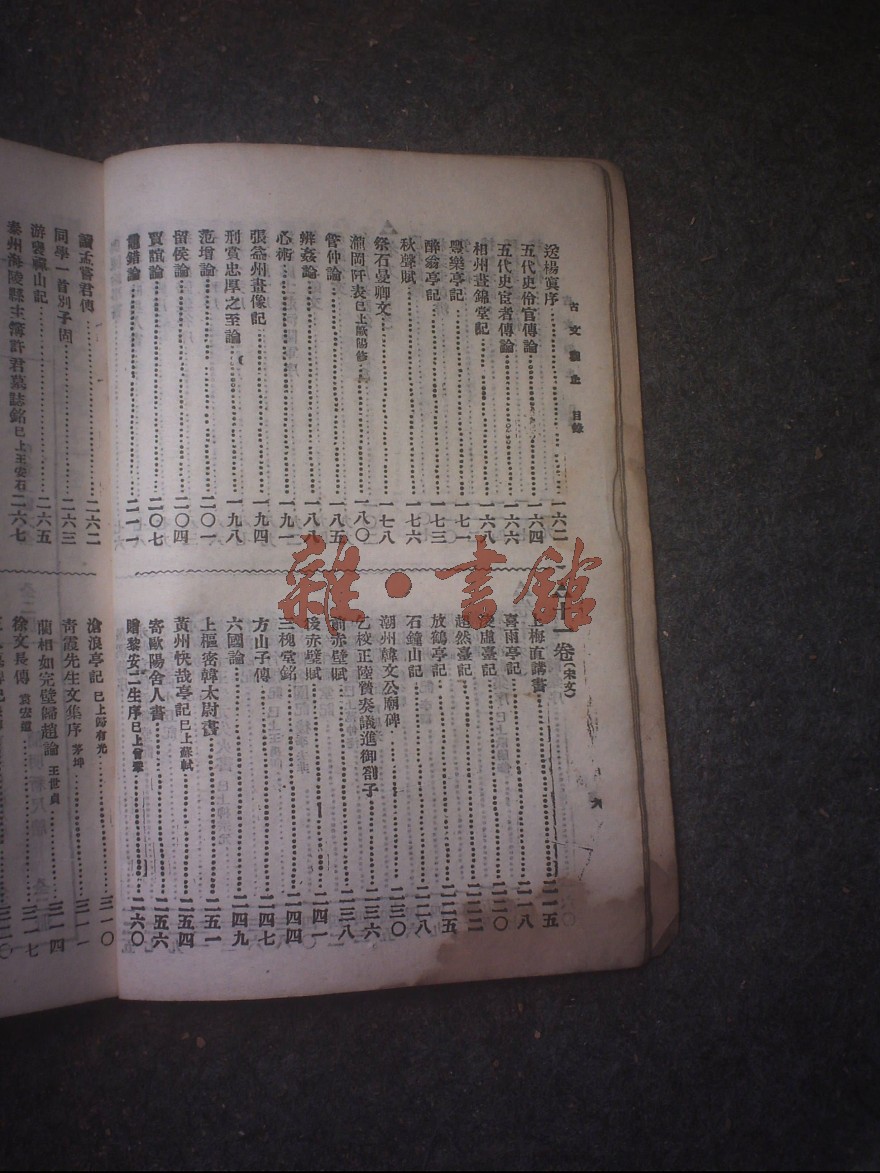 古文觀止 目錄
送楊寘序 一六二
五代史伶官傳論 一六四
五代史宦者傳論 一六六
相州晝錦堂記 一六八
豐樂亭記 一七一
醉翁亭記 一七三
秋聲賦 一七六
祭石曼卿文 一七八
瀧岡阡表 已上歐陽修 一八〇
管仲論 一八五
辨姦論 一八八
心術 一九一
張益州畫像記 一九四
刑賞忠厚之至論 一九八
范增論 二〇一
留侯論 二〇四
賈誼論 二〇七
鼂錯論 二一一
十一卷(宋文)
上梅直講書 二一五
喜雨亭記 二一八
凌虛臺記 二二〇
超然臺記 二二二
放鶴亭記 二二五
石鐘山記 二二八
潮州韓文公廟碑 二三〇
乞校正陸贄奏議進御劄子 二三六
前赤壁賦 二三八
後赤壁賦 二四一
三槐堂銘 二四四
方山子傳 二四七
六國論 二四九
上樞密韓太尉書 二五一
黃州快哉亭記 已上蘇軾 二五四
寄歐陽舍人書 二五六
贈黎安二生序 已上曾鞏 二六〇
讀孟嘗君傳 二六二
同學一首別子固 二六三
游褒禪山記 二六五
泰州海陵縣主簿許君墓誌銘 已上王安石 二六七
滄浪亭記 已上歸有光 三一〇
青霞先生文集序 茅坤 三一一
藺相如完璧歸趙論 王世貞 三一四
徐文長傳 袁宏道 三一七
三二〇
雜·書館